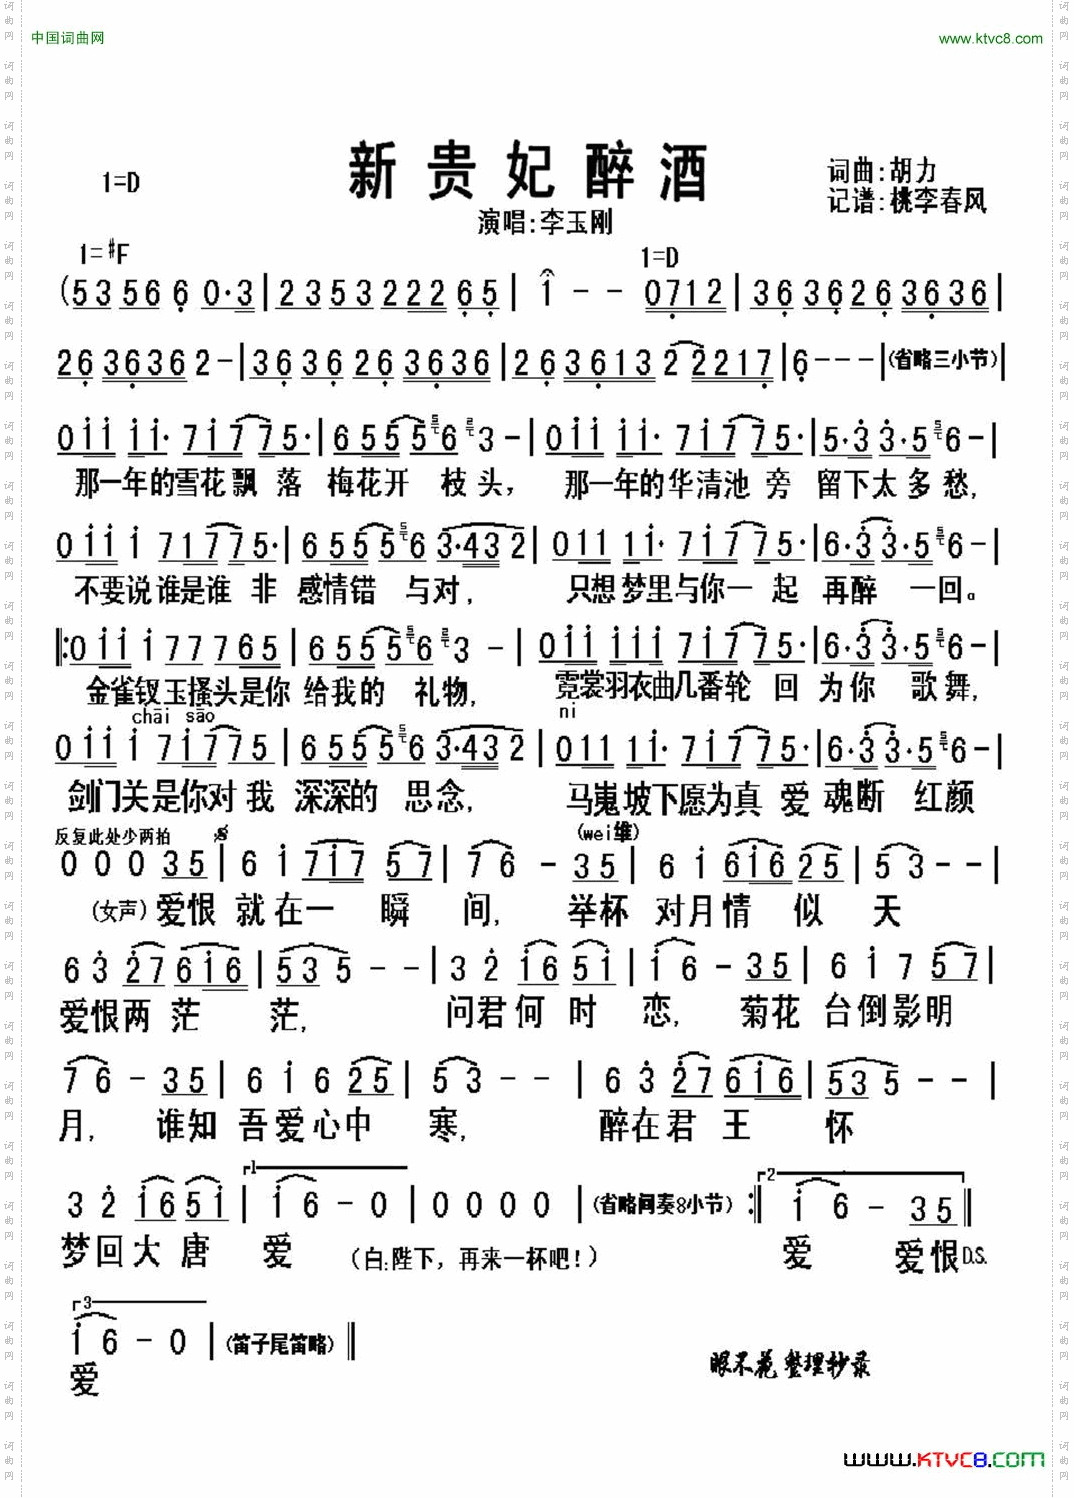 中国词曲网 www.ktvc8.com
新贵妃醉酒
1=D
词曲:胡力
记谱:桃李春风
演唱:李玉刚
1=#F 1=D
(53 56 6 0·3|23 53 2226 65|1 - - 0712|36 36 26 3636|
26 3636 2 -|36 36 26 3636|26 3613 2 2217|6 - - -|(省略三小节)|
011 11· 7177 5·|6555 56 3 -|011 11· 7177 5·|5·3 3·5 6 -|
那一年的雪花飘 落 梅花开 枝头, 那一年的华清池 旁 留下太多愁,
011 1 7177 5·|6555 56 3·432|011 11· 7177 5·|6·3 3·5 6 -|
不要说谁是谁 非 感情错 与对, 只想梦里与你一 起 再醉 一回。
‖:011 1 77 765|6555 56 3 -|011 111 7177 5·|6·3 3·5 6 -|
金雀钗玉搔头是你 给我的 礼物, 霓裳羽衣曲几番轮 回 为你 歌舞,
chāi sāo ni
011 1 7177 5|6555 56 3·432|011 11· 7177 5·|6·3 3·5 6 -|
剑门关是你对 我 深深的 思念, 马嵬坡下愿为真 爱 魂断 红颜
反复此处少两拍 (wei维)
0 0 0 35|6 1 717 57|76 - 35|6 1 616 25|53 - -|
(女声) 爱恨 就在一 瞬 间, 举杯 对月情 似 天
6 3 27 616|535 - -|3 2 16 51|16 - 35|6 1 7 57|
爱恨两 茫 茫, 问君何 时 恋, 菊花 台倒影明
76 - 35|6 1 6 25|53 - -|6 3 27 616|535 - -|
月, 谁知 吾爱心中 寒, 醉在君 王 怀
3 2 16 51|1 16 - 0|0 0 0 0|(省略间奏8小节):‖2 16 - 35‖
梦回大 唐 爱 (白:陛下,再来一杯吧!) 爱 爱恨D.S.
3
16 - 0|(笛子尾笛略)‖
爱
眼不花整理抄录
www.KTVC8.com